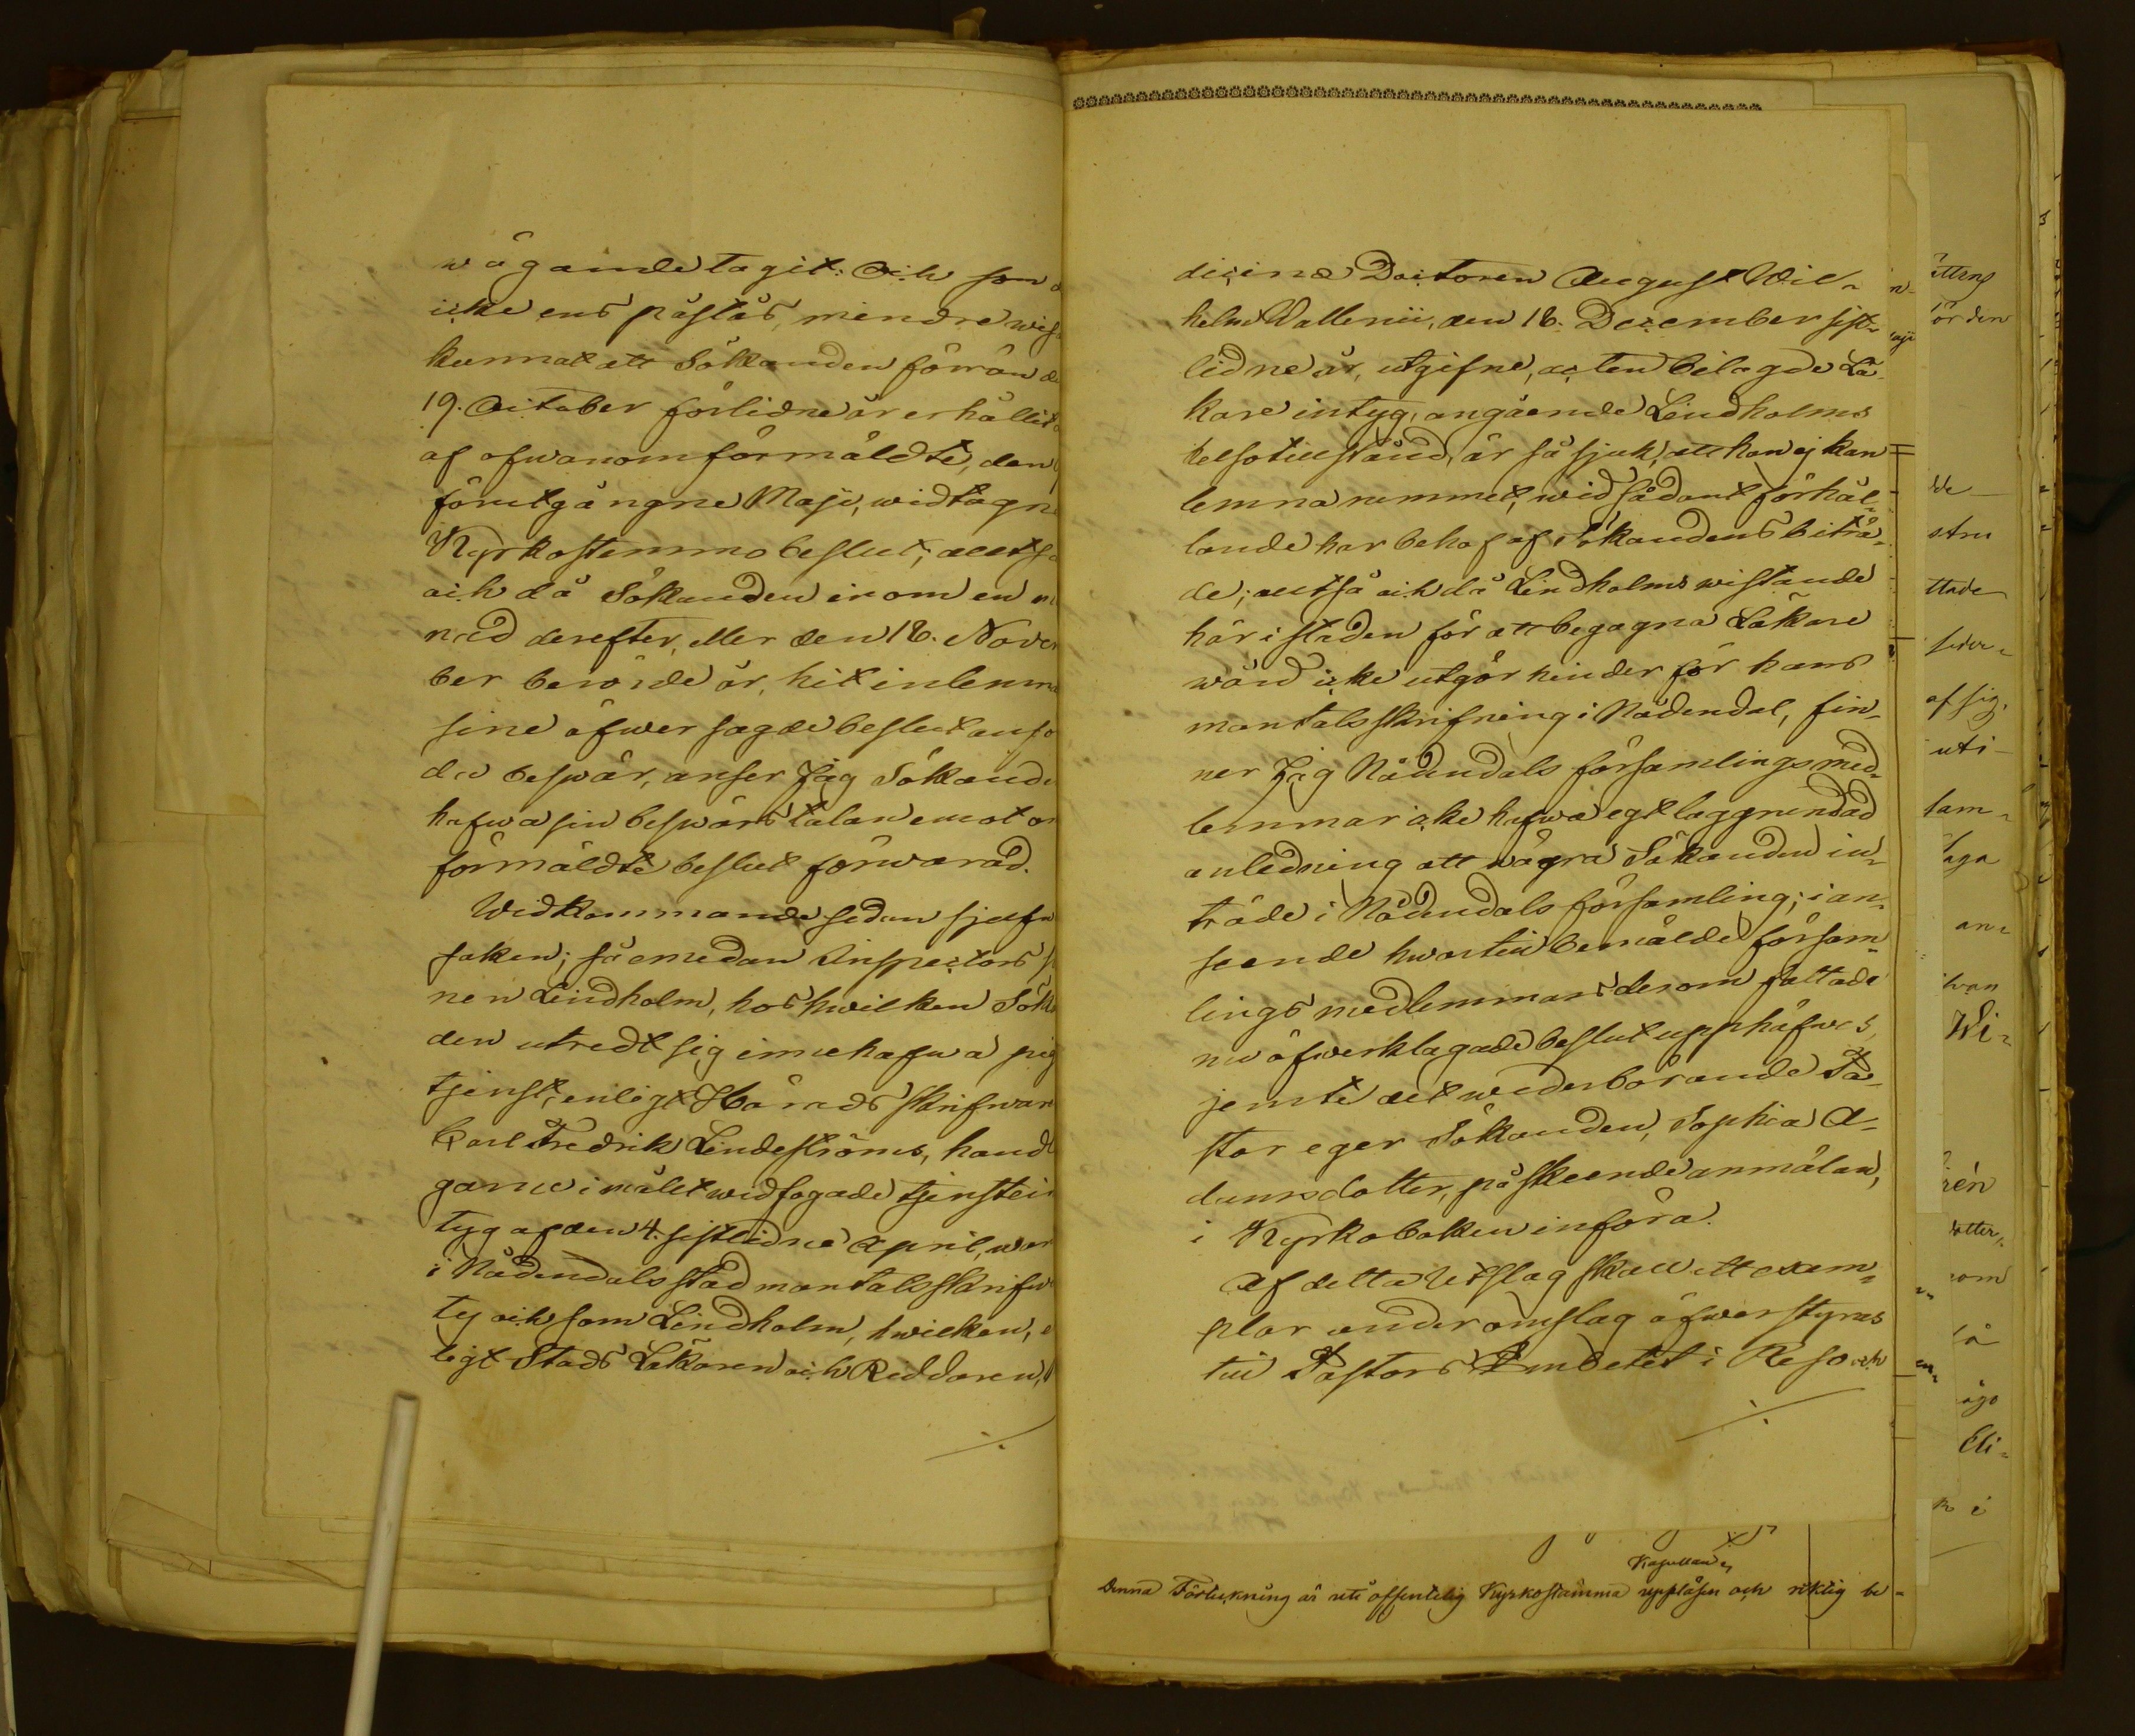 wägande tagit. Och som
icke ens påstås, mindre
kunnat att Sökanden förrän
19. October förlidne år erhållit
af ofwanomförmäldte, den
förutgångne Maji, widtagn
Kyrkostemmobeslut; alltså
och då Sökanden inom en
nad derefter, eller den 18. Novem
ber berörde år, hit inlemna
sine öfwer sagde beslut anfö
da beswär, anser Jag Sökande
hafwa sin beswärstalan emot
förmäldte beslut förwarad.
Widkommande sedan sjelfwa
saken; så emedan Inspectors
nen Lindholm, hos hwilken Sök
den utredt sig innehafwa pig
tjenst, enligt Härads Skrifwar
Carl Fredrik Lindeströms, hand
garne i målet widfogade tjenstein
tyg af den 4. sistlidne April, war
i Nådendals stad mantalsskrifw
ty och som Lindholm, hwilken,
ligt Stads Läkaren och Riddaren,
dicinæ Doctoren August Wil-
helm Wallenii, den 18. December sist-
lidne år, utgifne, acten bilagde Lä-
kare intyg, angående Lindholms
helsotillstånd, är så sjuk, att han ej kan
lemna rummet, wid sådant förhål-
lande har behof af Sökandens biträ-
de; alltså och då Lindholms wistande
här i staden för att begagna Läkare
wård icke utgör hinder för hans
mantalsskrifning i Nådendal, fin-
ner Jag Nådendals församlings med-
lemmar icke hafwa egt laggrundad
anledning att wägra Sökanden in-
träde i Nådendals församling; i an-
seende hwartill bemälde försam-
lings medlemmars derom fattade
nu öfwerklagade beslut upphäfwes,
jemte det wederbörande Pa-
stor eger Sökanden, Sophia A-
damsdotter, på skeende anmälan,
i Kyrkoboken införa.
Af detta Utslag skall ett exem-
plar under omslag öfwerstyras
till Pastors Embetet i Reso och
Kapellan
Denna Förteckning är uti offentelig Kyrkostämma uppläsen och riktig be-
för den
ttade
af sig,
uti
Wi-